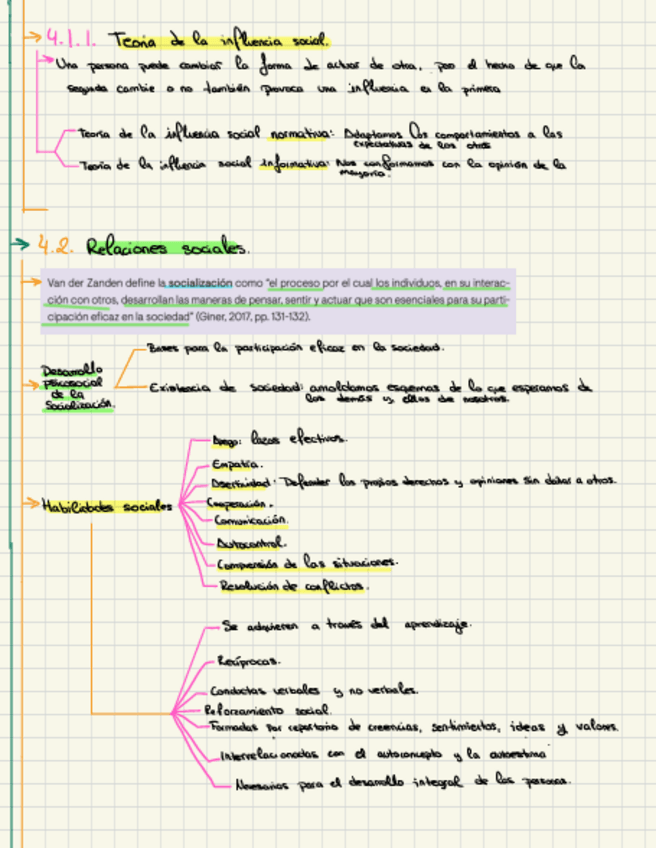 4.1.1. Teoría de la influencia social.
Una persona puede cambiar la forma de actuar de otra, por el hecho de que la
segunda cambie o no también provoca una influencia en la primera
Teoría de la influencia social normativa: Adaptamos los comportamientos a las
expectativas de los otros
Teoría de la influencia social informativa: Nos conformamos con la opinión de la
mayoría.
4.2. Relaciones sociales.
Van der Zanden define la socialización como "el proceso por el cual los individuos, en su interac-
ción con otros, desarrollan las maneras de pensar, sentir y actuar que son esenciales para su parti-
cipación eficaz en la sociedad" (Giner, 2017, pp. 131-132).
Bases para la participación eficaz en la sociedad.
Desarrollo
psicosocial
de la
Socialización.
Existencia de sociedad: amoldamos esquemas de lo que esperamos de
los demás y ellos de nosotros.
Apego: lazos efectivos.
Empatía.
Asertividad: Defender los propios derechos y opiniones sin dañar a otros.
Habilidades sociales
Cooperación.
Comunicación.
Autocontrol.
Comprensión de las situaciones.
Resolución de conflictos.
Se adquieren a través del aprendizaje.
Recíprocas.
Conductas verbales y no verbales.
Reforzamiento social.
Formadas por repertorio de creencias, sentimientos, ideas y valores.
Interrelacionadas con el autoconcepto y la autoestima
Necesarios para el desarrollo integral de las personas.